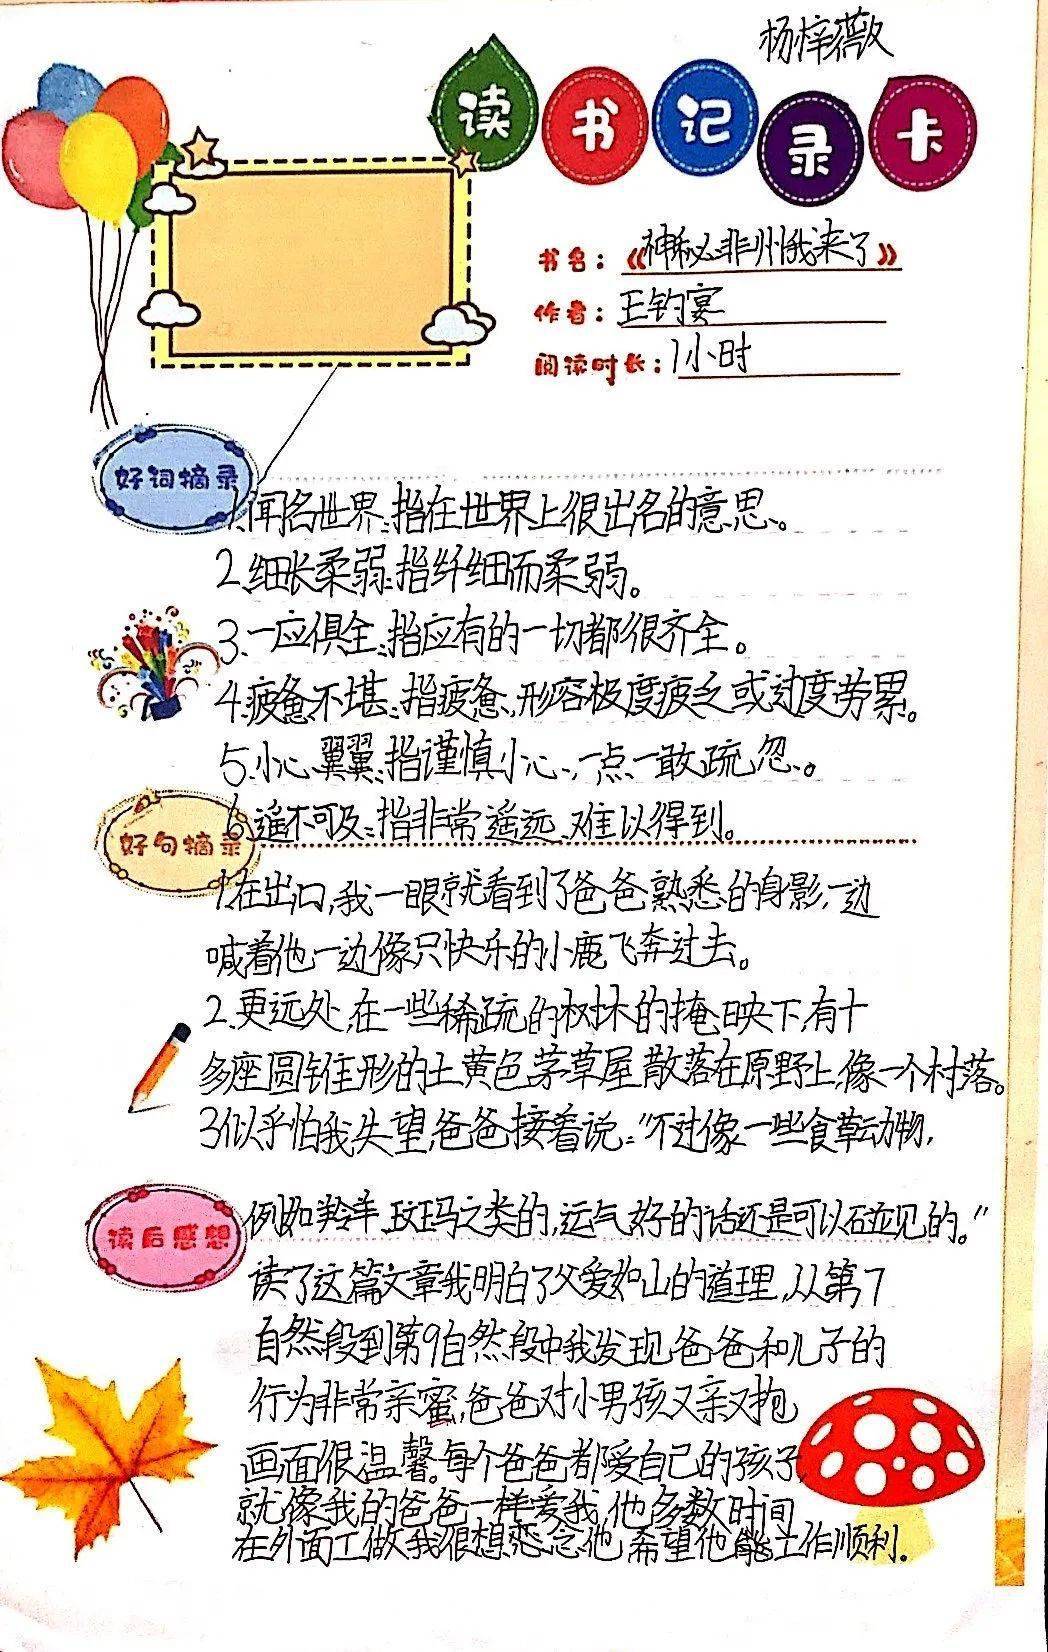 杨梓薇
读书记录卡
书名：《神秘非州我来了》
作者：王钓宴
阅读时长：1小时
好词摘录
1.闻名世界：指在世界上很出名的意思。
2.细长柔弱：指纤细而柔弱。
3.一应俱全：指应有的一切都很齐全。
4.疲惫不堪：指疲惫，形容极度疲乏或过度劳累。
5.小心翼翼：指谨慎小心，一点一敢疏忽。
好句摘录
6.遥不可及：指非常遥远、难以得到。
1.在出口，我一眼就看到了爸爸熟悉的身影，一边
喊着他一边像只快乐的小鹿飞奔过去。
2.更远处，在一些稀疏的树林的掩映下，有十
多座圆锥形的土黄色茅草屋散落在原野上，像一个村落。
3似乎怕我失望，爸爸接着说：“不过像一些食草动物，
读后感想
例如羚羊、斑玛之类的，运气好的话还是可以碰见的。”
读了这篇文章我明白了父爱如山的道理，从第7
自然段到第9自然段中我发现爸爸和儿子的
行为非常亲蜜，爸爸对小男孩又亲又抱
画面很温馨。每个爸爸都爱自己的孩子，
就像我的爸爸一样爱我，他多数时间
在外面工做我很想恋念他，希望他能工作顺利。